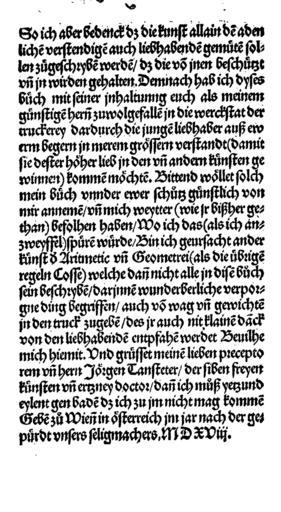 So ich aber bedenck dz die kunst allain dē aden
lichē verstendigē auch liebhabendē gemütē sol-
len zůgeschrybē werdē/ dz die vō jnen beschützt
vn̄ jn wirden gehalten. Demnach hab ich dyses
bůch mit seiner jnhaltunng euch als meinem
günstigē herñ zuwolgefallē jn die werckstat der
truckerey dardurch die jungē liebhaber auß ew
erm begern jn merem grössern verstandt(damit
sie dester höher lieb jn den vn̄ andern künsten ge
winnen) kommē möchtē. Bittend wöllet solch
mein bůch vnnder ewer schütz günstlich von
mir annemē/vn̄ mich weytter (wie jr bißher ge-
than) befolhen haben/Wo ich das(als ich an-
zweyffel)spürē würde/Bin ich geursacht ander
künst ď Aritmetic vn̄ Geometrei(als die übrigē
regeln Cosse) welche dañ nicht alle jn disē bůch
sein beschrybē/darjnnē wunderberliche verpor-
gne ding begriffen/ auch vō wag vn̄ gewichtē
jn den truck zugebē/des jr auch mit klainē dāck
von den liebhabendē entpfahē werdet Beuilhe
mich hiemit. Vnd grüsset meinē lieben precepto
rem vn̄ hern Jörgen Tansteter/ der siben freyen
künsten vn̄ ertzney doctor/ dañ ich můß yetzund
eylent gen badē dz ich zu jm nicht mag kommē
Gebē zů Wieñ in österreich jm jar nach der ge-
pürdt vnsers seligmachers. M D X Viij.